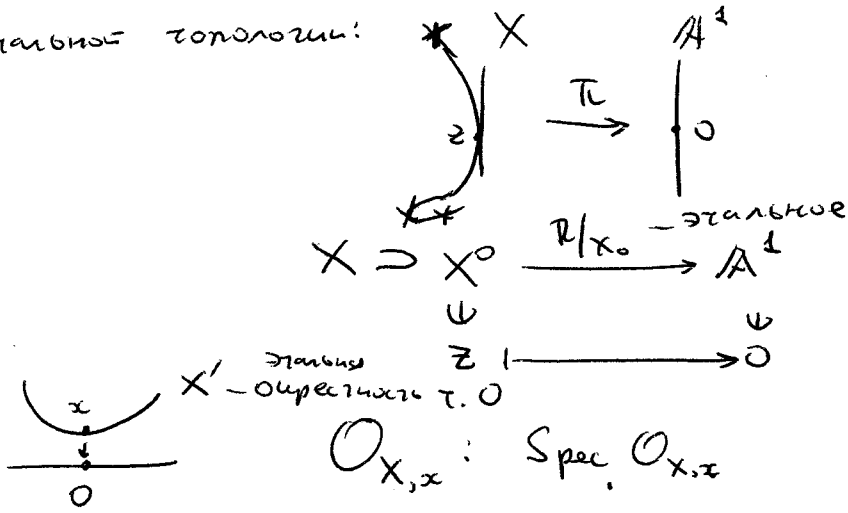 нальной топологии: X A¹
z π 0
π/X₀ – этальное
X ⊃ X⁰ → A¹
∪ ∪
z ↦ 0
x X' – этальная окрестность т. 0
0
O_{X,x} : Spec O_{X,x}